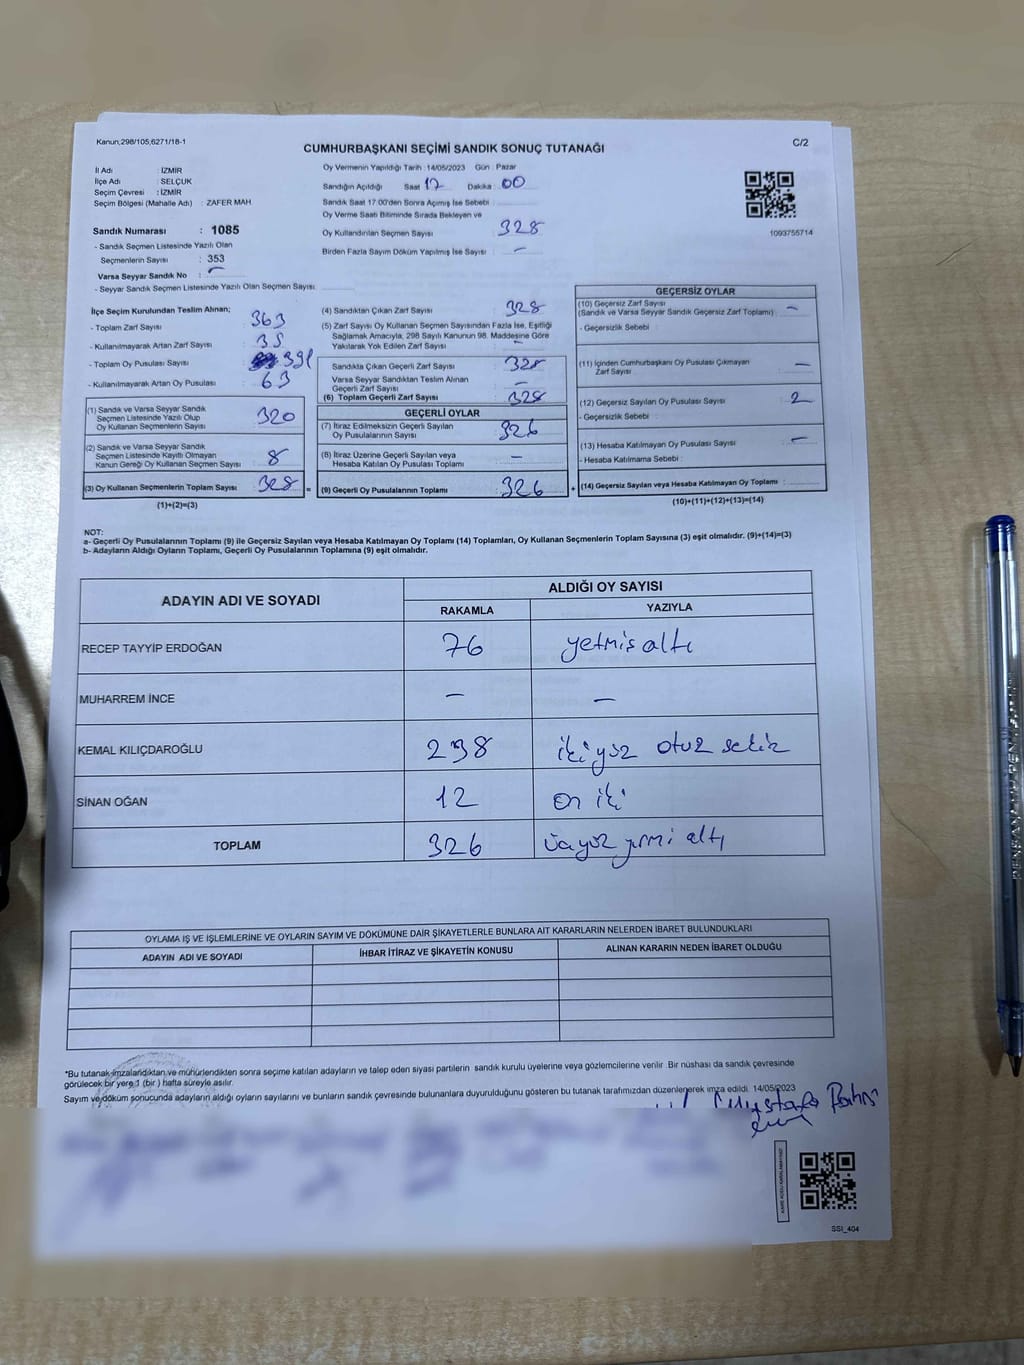 Kanun;298/105;6271/18-1
C/2
CUMHURBAŞKANI SEÇİMİ SANDIK SONUÇ TUTANAĞI
İl Adı : İZMİR
İlçe Adı : SELÇUK
Seçim Çevresi : İZMİR
Seçim Bölgesi (Mahalle Adı) : ZAFER MAH
Sandık Numarası : 1085
- Sandık Seçmen Listesinde Yazılı Olan
Seçmenlerin Sayısı : 353
Varsa Seyyar Sandık No : -
- Seyyar Sandık Seçmen Listesinde Yazılı Olan Seçmen Sayısı:
Oy Vermenin Yapıldığı Tarih : 14/05/2023 Gün : Pazar
Sandığın Açıldığı Saat : 17 Dakika : 00
Sandık Saat 17:00'den Sonra Açımış İse Sebebi :
Oy Verme Saati Bitiminde Sırada Bekleyen ve
Oy Kullandırılan Seçmen Sayısı : 328
Birden Fazla Sayım Döküm Yapılmış İse Sayısı : -
1093755714
İlçe Seçim Kurulundan Teslim Alınan;
- Toplam Zarf Sayısı : 363
- Kullanılmayarak Artan Zarf Sayısı : 35
- Toplam Oy Pusulası Sayısı : 391
- Kullanılmayarak Artan Oy Pusulası : 63
(1) Sandık ve Varsa Seyyar Sandık
Seçmen Listesinde Yazılı Olup
Oy Kullanan Seçmenlerin Sayısı : 320
(2) Sandık ve Varsa Seyyar Sandık
Seçmen Listesinde Kayıtlı Olmayan
Kanun Gereği Oy Kullanan Seçmen Sayısı : 8
(3) Oy Kullanan Seçmenlerin Toplam Sayısı : 328 =
(1)+(2)=(3)
(4) Sandıktan Çıkan Zarf Sayısı : 328
(5) Zarf Sayısı Oy Kullanan Seçmen Sayısından Fazla İse, Eşitliği
Sağlamak Amacıyla, 298 Sayılı Kanunun 98. Maddesine Göre
Yakılarak Yok Edilen Zarf Sayısı : -
Sandıkta Çıkan Geçerli Zarf Sayısı : 328
Varsa Seyyar Sandıktan Teslim Alınan
Geçerli Zarf Sayısı : -
(6) Toplam Geçerli Zarf Sayısı : 328
GEÇERLİ OYLAR
(7) İtiraz Edilmeksizin Geçerli Sayılan
Oy Pusulalarının Sayısı : 326
(8) İtiraz Üzerine Geçerli Sayılan veya
Hesaba Katılan Oy Pusulası Toplamı : -
(9) Geçerli Oy Pusulalarının Toplamı : 326 +
GEÇERSİZ OYLAR
(10) Geçersiz Zarf Sayısı
(Sandık ve Varsa Seyyar Sandık Geçersiz Zarf Toplamı) : -
- Geçersizlik Sebebi :
(11) İçinden Cumhurbaşkanı Oy Pusulası Çıkmayan
Zarf Sayısı : -
(12) Geçersiz Sayılan Oy Pusulası Sayısı : 2
- Geçersizlik Sebebi :
(13) Hesaba Katılmayan Oy Pusulası Sayısı : -
- Hesaba Katılmama Sebebi :
(14) Geçersiz Sayılan veya Hesaba Katılmayan Oy Toplamı :
(10)+(11)+(12)+(13)=(14)
NOT:
a- Geçerli Oy Pusulalarının Toplamı (9) ile Geçersiz Sayılan veya Hesaba Katılmayan Oy Toplamı (14) Toplamları, Oy Kullanan Seçmenlerin Toplam Sayısına (3) eşit olmalıdır. (9)+(14)=(3)
b- Adayların Aldığı Oyların Toplamı, Geçerli Oy Pusulalarının Toplamına (9) eşit olmalıdır.
ADAYIN ADI VE SOYADI ALDIĞI OY SAYISI
RAKAMLA YAZIYLA
RECEP TAYYİP ERDOĞAN 76 yetmis altı
MUHARREM İNCE - -
KEMAL KILIÇDAROĞLU 238 iki yüz otuz sekiz
SİNAN OĞAN 12 on iki
TOPLAM 326 üçyüz yirmi altı
OYLAMA İŞ VE İŞLEMLERİNE VE OYLARIN SAYIM VE DÖKÜMÜNE DAİR ŞİKAYETLERLE BUNLARA AİT KARARLARIN NELERDEN İBARET BULUNDUKLARI
ADAYIN ADI VE SOYADI İHBAR İTİRAZ VE ŞİKAYETİN KONUSU ALINAN KARARIN NEDEN İBARET OLDUĞU
*Bu tutanak imzalandıktan ve mühürlendikten sonra seçime katılan adayların ve talep eden siyasi partilerin sandık kurulu üyelerine veya gözlemcilerine verilir. Bir nüshası da sandık çevresinde
görülecek bir yere 1 (bir) hafta süreyle asılır.
Sayım ve döküm sonucunda adayların aldığı oyların sayılarını ve bunların sandık çevresinde bulunanlara duyurulduğunu gösteren bu tutanak tarafımızdan düzenlenerek imza edildi. 14/05/2023
Mustafa
SSI_404